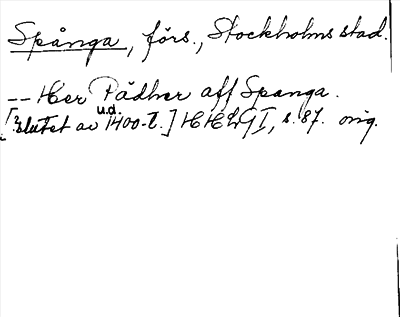 Spånga, förs., Stockholms stad.
-- Her Pädher aff Spanga.
u.d.
[?slutet av 1400-t.] HHLGI, s. 87. orig.